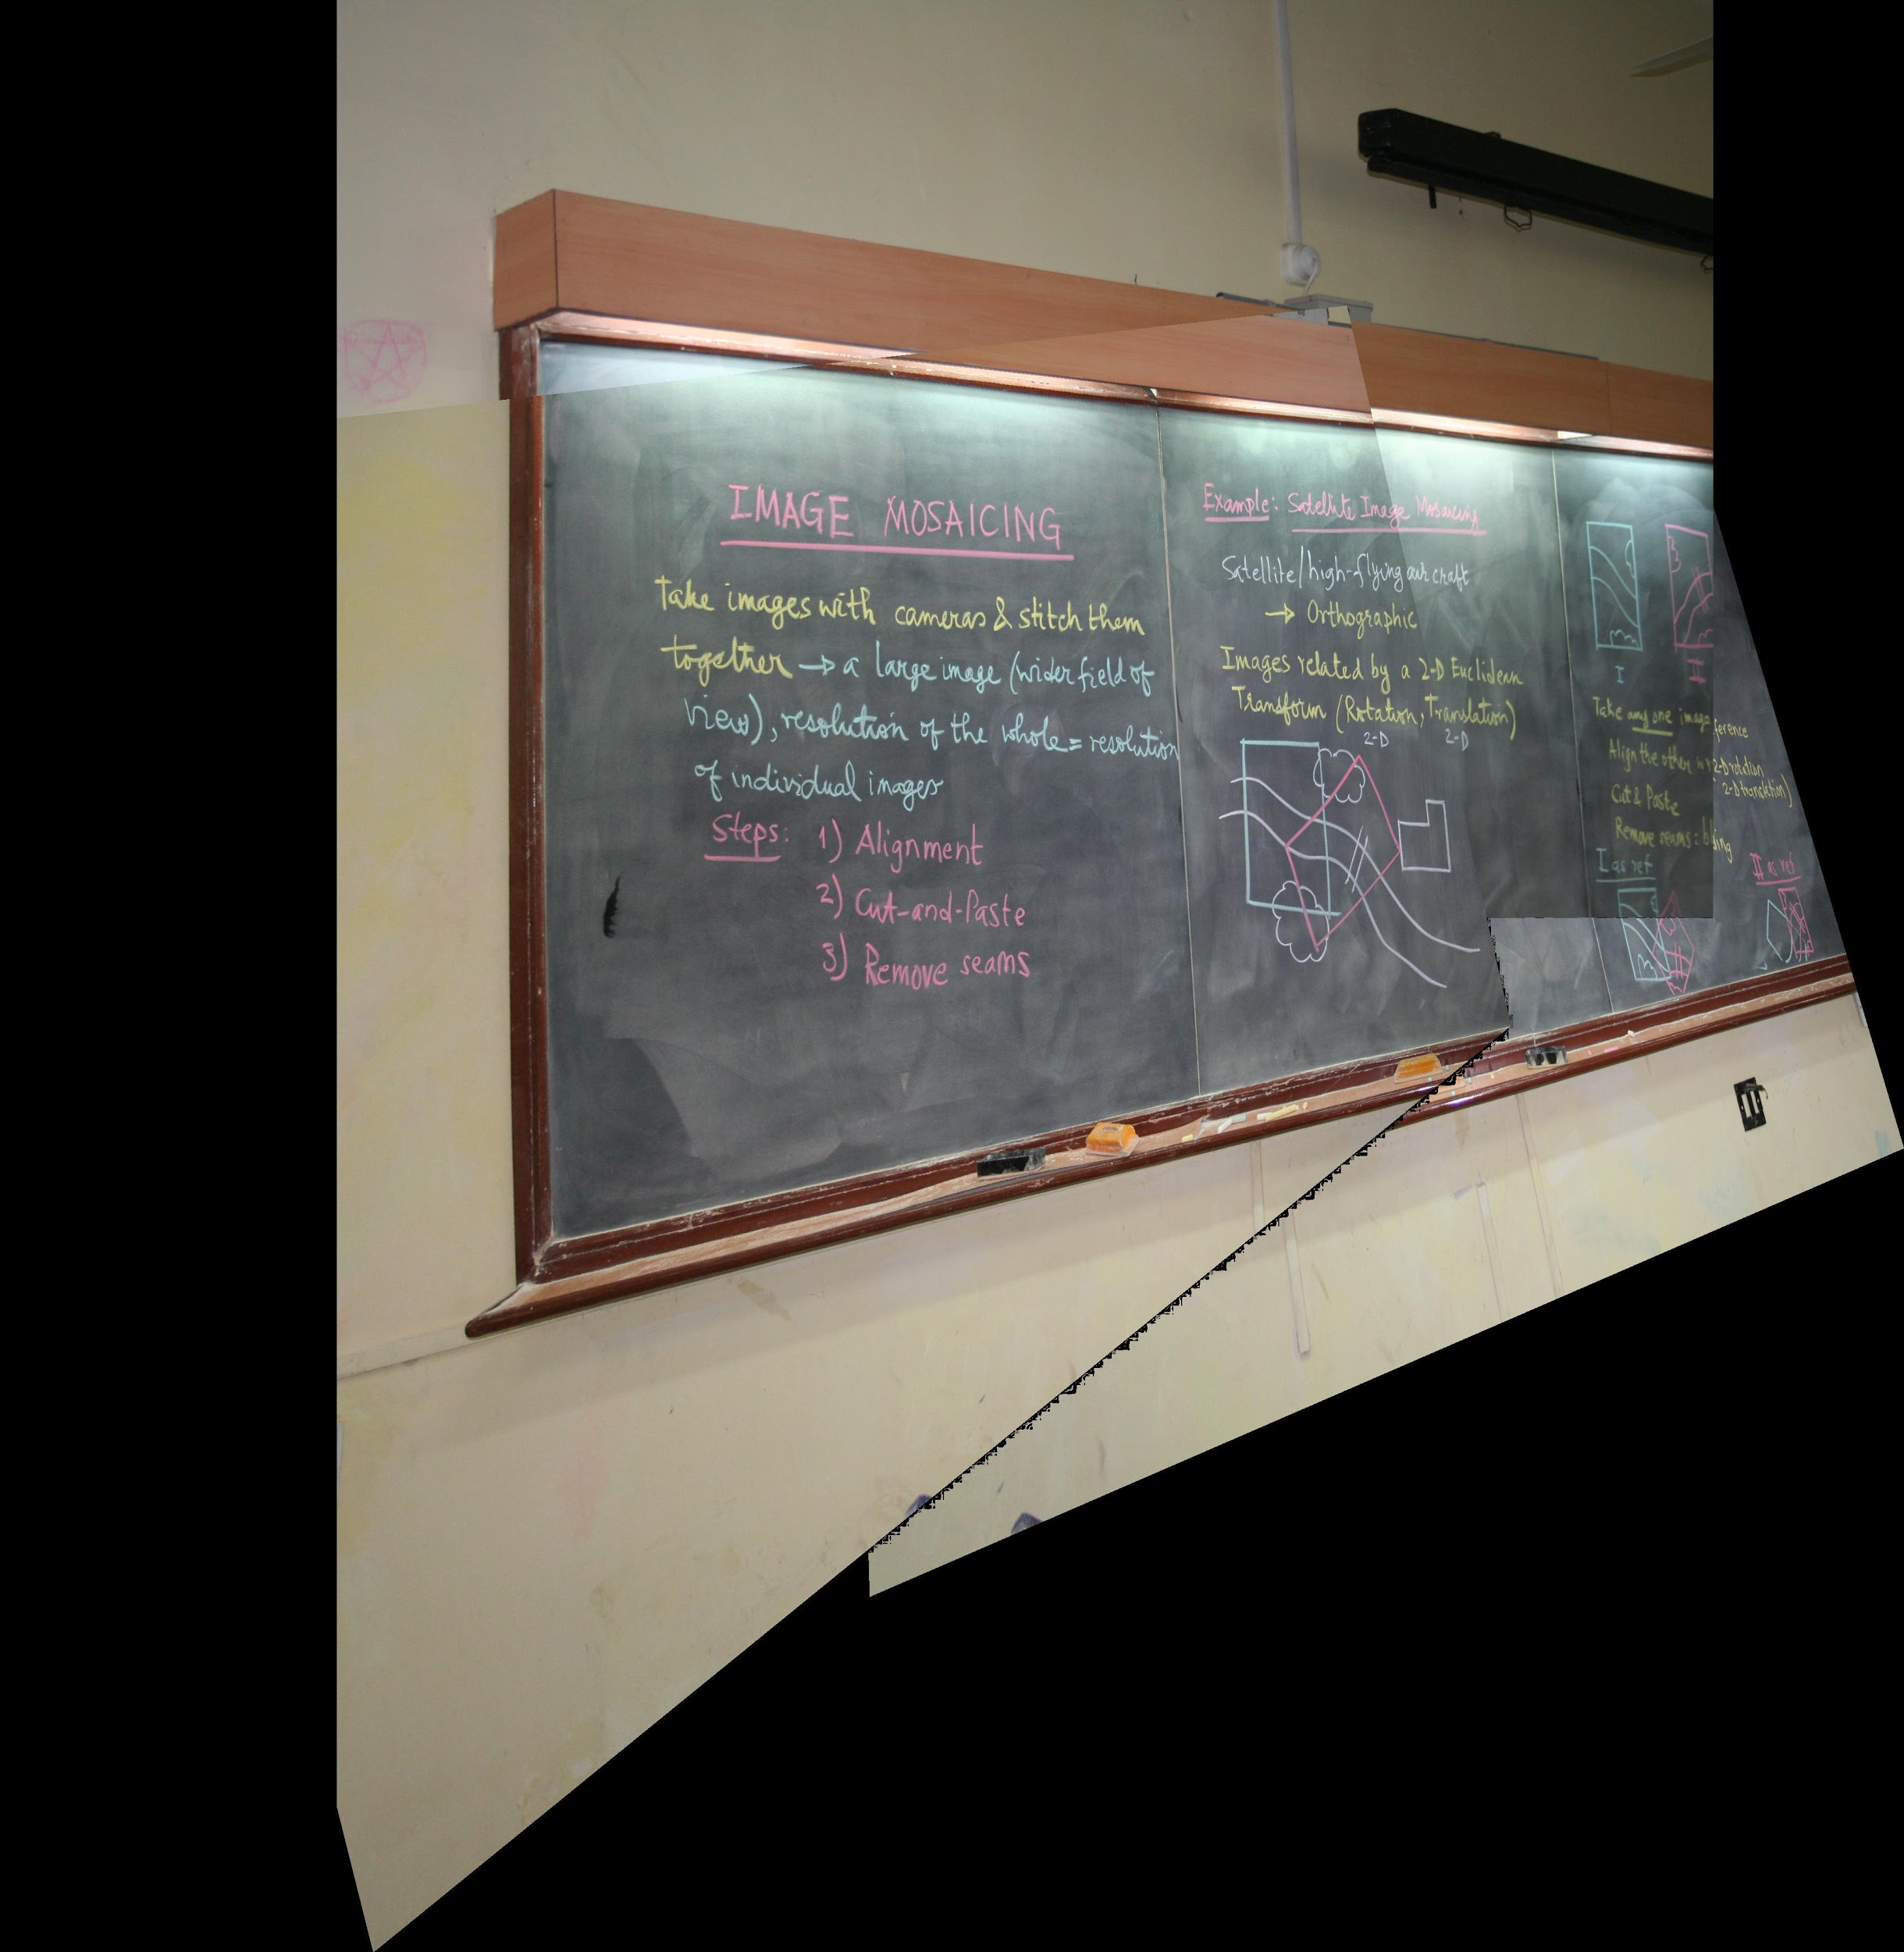 IMAGE MOSAICING
Take images with cameras & stitch them
together → a large image (wider field of
view), resolution of the whole = resolution
of individual images
Steps: 1) Alignment
2) Cut-and-Paste
3) Remove seams
Example: Satellite Image Mosaicing
Satellite/high-flying air craft
→ Orthographic
Images related by a 2-D Euclidean
Transform (Rotation, Translation)
2-D 2-D
I II
Take any one image ference
Align the other 2-D rotation
2-D translation)
Cut & Paste
Remove seams: b ding
I as ref II as ref